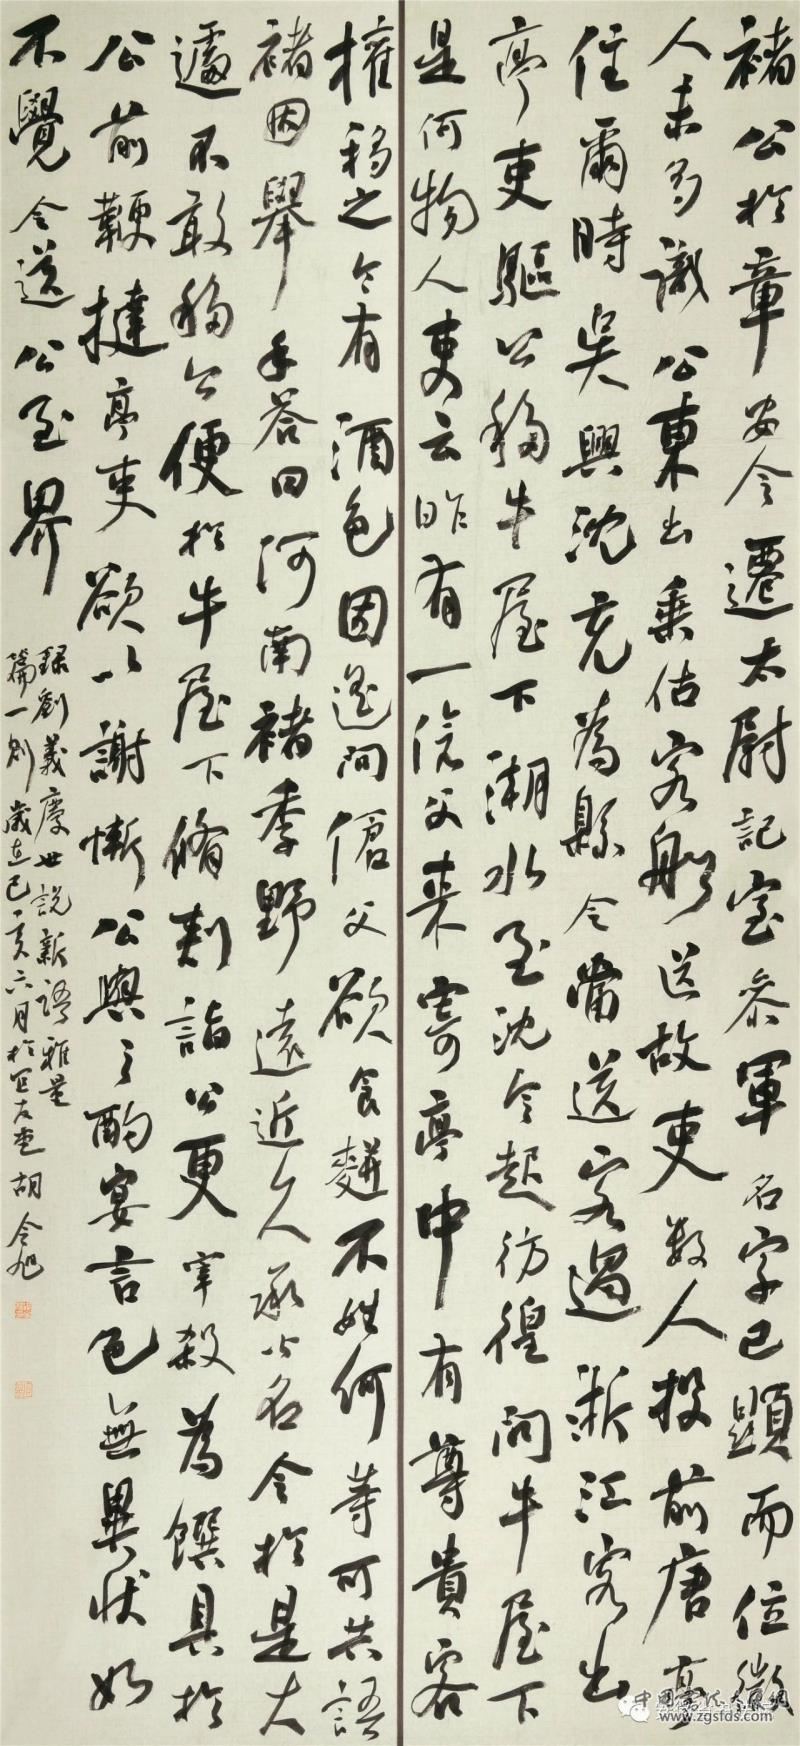 褚公於章安令遷太尉記室參軍名字已顯而位微
人未多識公東出乘估客船送故吏數人投前唐亭
住爾時吳興沈充為縣令當送客過浙江客出
亭吏驅公移牛屋下潮水至沈令起彷徨問牛屋下
是何物人吏云昨有一傖父來寄亭中有尊貴客
權移之令有酒色因遙問傖父欲食䴵不姓何等可共語
褚因舉手答曰河南褚季野遠近久承公名令於是大
遽不敢移公便於牛屋下脩刺詣公更宰殺為饌具於
公前鞭撻亭吏欲以謝慚公與之酌宴言色無異狀如
不覺令送公至界
錄劉義慶世說新語雅量
篇一則歲在己亥六月於 胡令旭
www.zgsfds.com